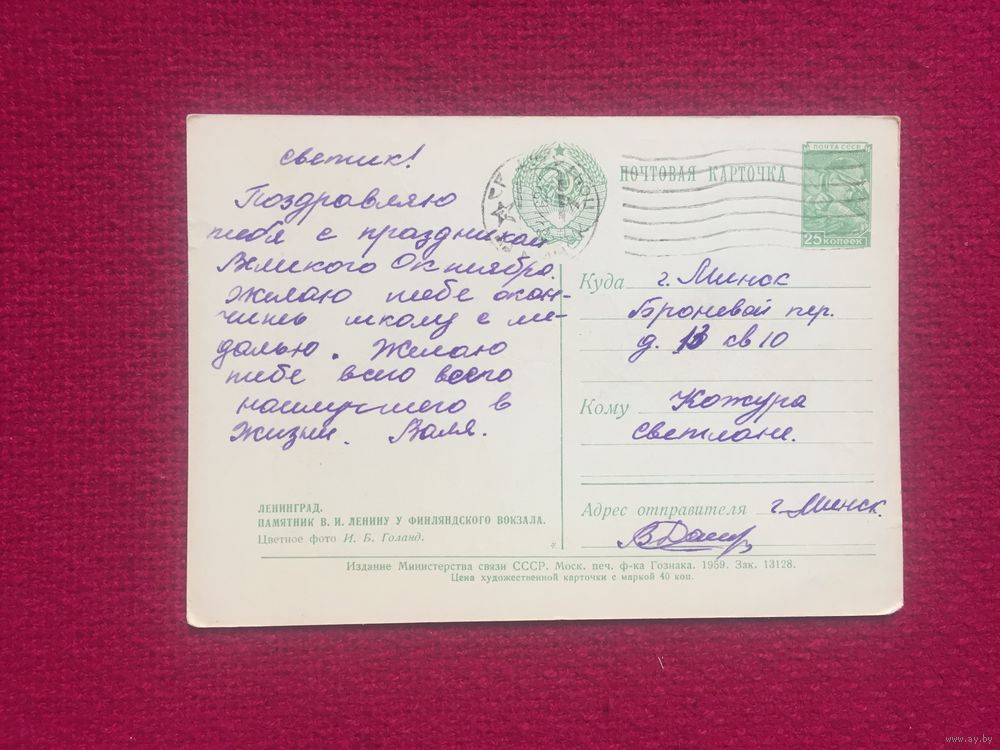 Светик!
Поздравляю
тебя с праздником
Великого Октября.
Желаю тебе окон-
чить школу с ме-
далью. Желаю
тебе всего всего
наилучшего в
жизни. Валя.
ЛЕНИНГРАД.
ПАМЯТНИК В. И. ЛЕНИНУ У ФИНЛЯНДСКОГО ВОКЗАЛА.
Цветное фото И. Б. Голанд.
ПОЧТОВАЯ КАРТОЧКА
ПОЧТА СССР
25 КОПЕЕК
Куда г. Минск
Броневой пер.
д. 13 кв 10
Кому Кожура
Светлане.
Адрес отправителя г. Минск.
Издание Министерства связи СССР. Моск. печ. ф-ка Гознака. 1959. Зак. 13128.
Цена художественной карточки с маркой 40 коп.
www.ay.by